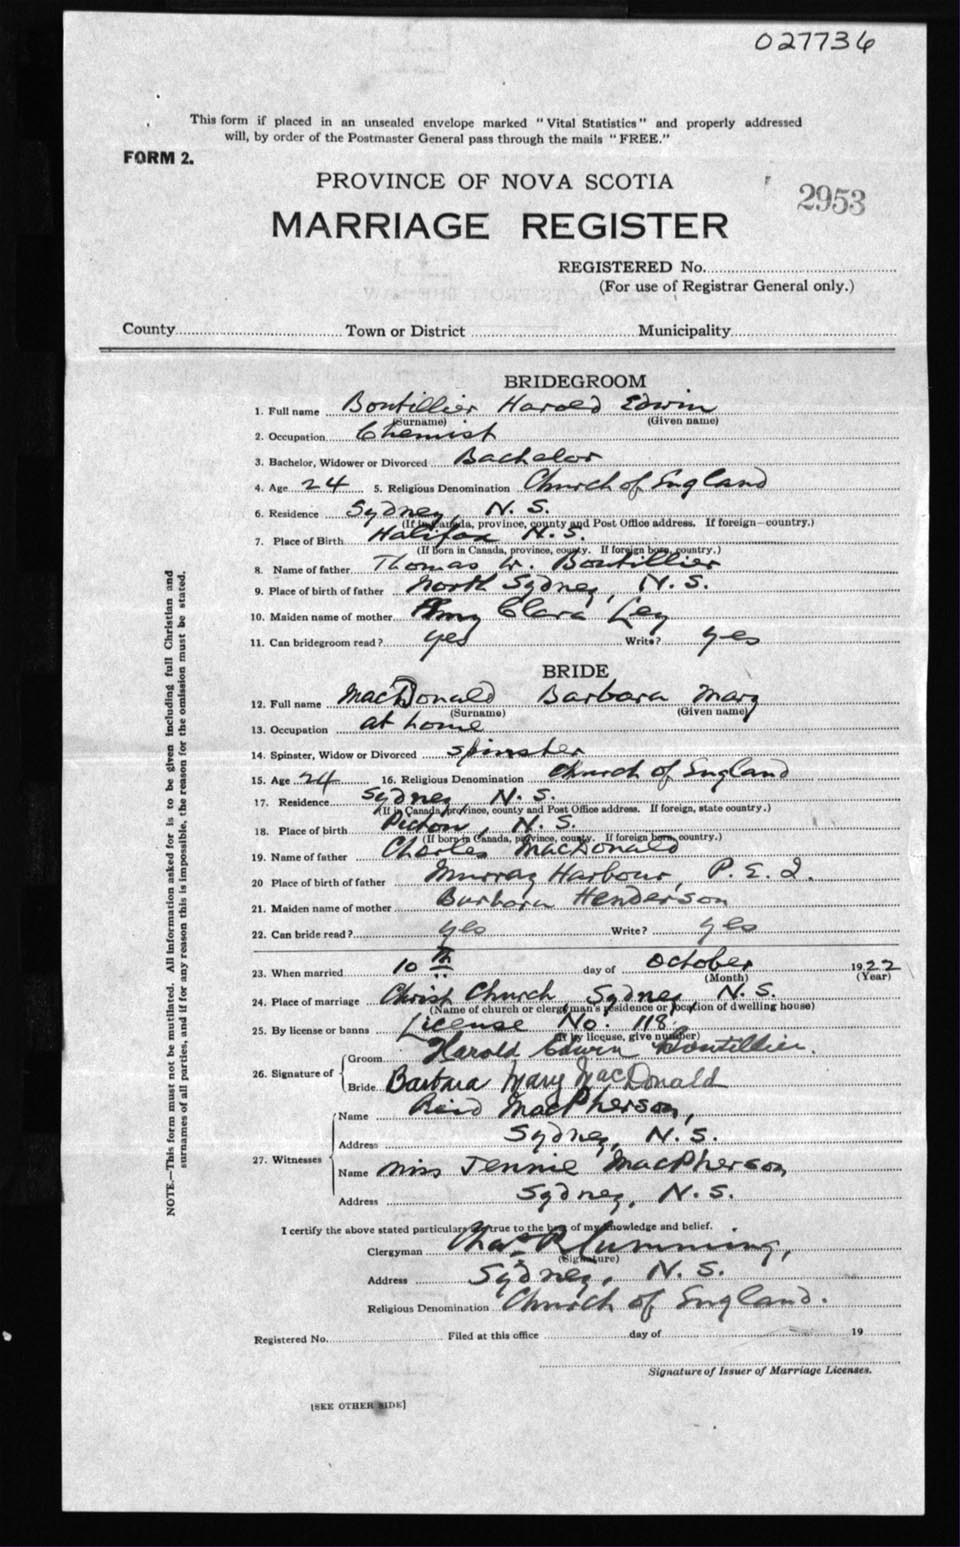 027736
This form if placed in an unsealed envelope marked "Vital Statistics" and properly addressed
will, by order of the Postmaster General pass through the mails "FREE."
FORM 2.
PROVINCE OF NOVA SCOTIA
2953
MARRIAGE REGISTER
REGISTERED No.
(For use of Registrar General only.)
County Town or District Municipality
BRIDEGROOM
1. Full name Boutillier Harold Edwin
(Surname) (Given name)
2. Occupation Chemist
3. Bachelor, Widower or Divorced Bachelor
4. Age 24 5. Religious Denomination Church of England
6. Residence Sydney, N. S.
(If in Canada, province, county and Post Office address. If foreign—country.)
7. Place of Birth Halifax N. S.
(If born in Canada, province, county. If foreign born, country.)
8. Name of father Thomas W. Boutillier
9. Place of birth of father North Sydney, N. S.
10. Maiden name of mother Amy Clara Ley
11. Can bridegroom read? yes Write? yes
BRIDE
12. Full name MacDonald Barbara Mary
(Surname) (Given name)
13. Occupation at home
14. Spinster, Widow or Divorced spinster
15. Age 24 16. Religious Denomination Church of England
17. Residence Sydney, N. S.
(If in Canada, province, county and Post Office address. If foreign, state country.)
18. Place of birth Pictou, N. S.
(If born in Canada, province, county. If foreign born, country.)
19. Name of father Charles MacDonald
20 Place of birth of father Murray Harbour, P. E. I.
21. Maiden name of mother Barbara Henderson
22. Can bride read? yes Write? yes
23. When married 10th day of October 1922
(Month) (Year)
24. Place of marriage Christ Church Sydney, N. S.
(Name of church or clergyman's residence or location of dwelling house)
25. By license or banns License No. 118
(If by license, give number)
26. Signature of Groom Harold Edwin Boutillier.
Bride Barbara Mary MacDonald
27. Witnesses Name Reid MacPherson,
Address Sydney, N. S.
Name Miss Jennie MacPherson
Address Sydney, N. S.
I certify the above stated particulars are true to the best of my knowledge and belief.
Clergyman Chas R Cumming,
(Signature)
Address Sydney, N. S.
Religious Denomination Church of England.
Registered No. Filed at this office day of 19
Signature of Issuer of Marriage Licenses.
[SEE OTHER SIDE]
NOTE.—This form must not be mutilated. All information asked for is to be given including full Christian and
surnames of all parties, and if for any reason this is impossible, the reason for the omission must be stated.